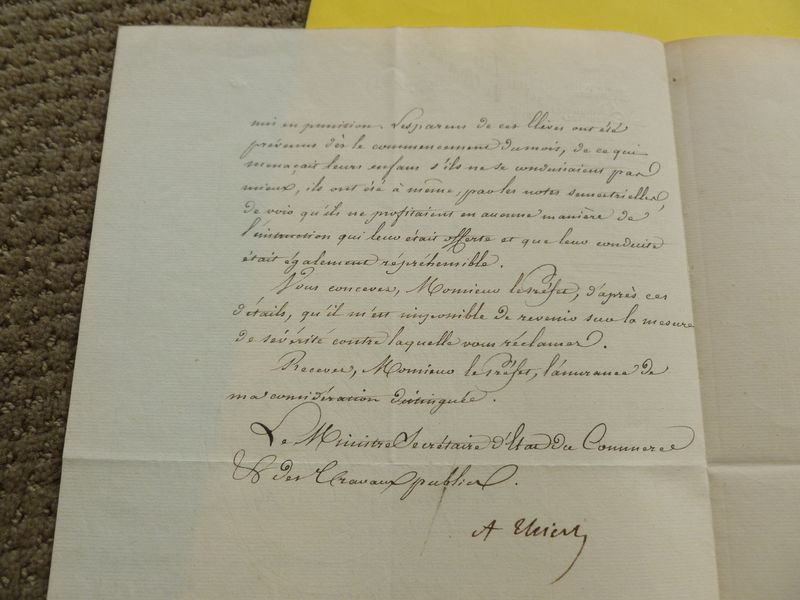 mis en punition. Les parens de ces Elèves ont été
prévenus dès le commencement du mois, de ce qui
menaçait leurs enfans s'ils ne se conduisaient pas
mieux, ils ont été à même, par les notes semestrielles,
de voir qu'ils ne profitaient en aucune manière de
l'instruction qui leur était offerte et que leur conduite
était également répréhensible.
Vous concevez, Monsieur le Préfet, d'après ces
détails, qu'il m'est impossible de revenir sur la mesure
de sévérité contre laquelle vous réclamez.
Recevez, Monsieur le Préfet, l'assurance de
ma considération distinguée.
Le Ministre Secrétaire d'Etat du Commerce
& des Travaux publics.
A Thiers